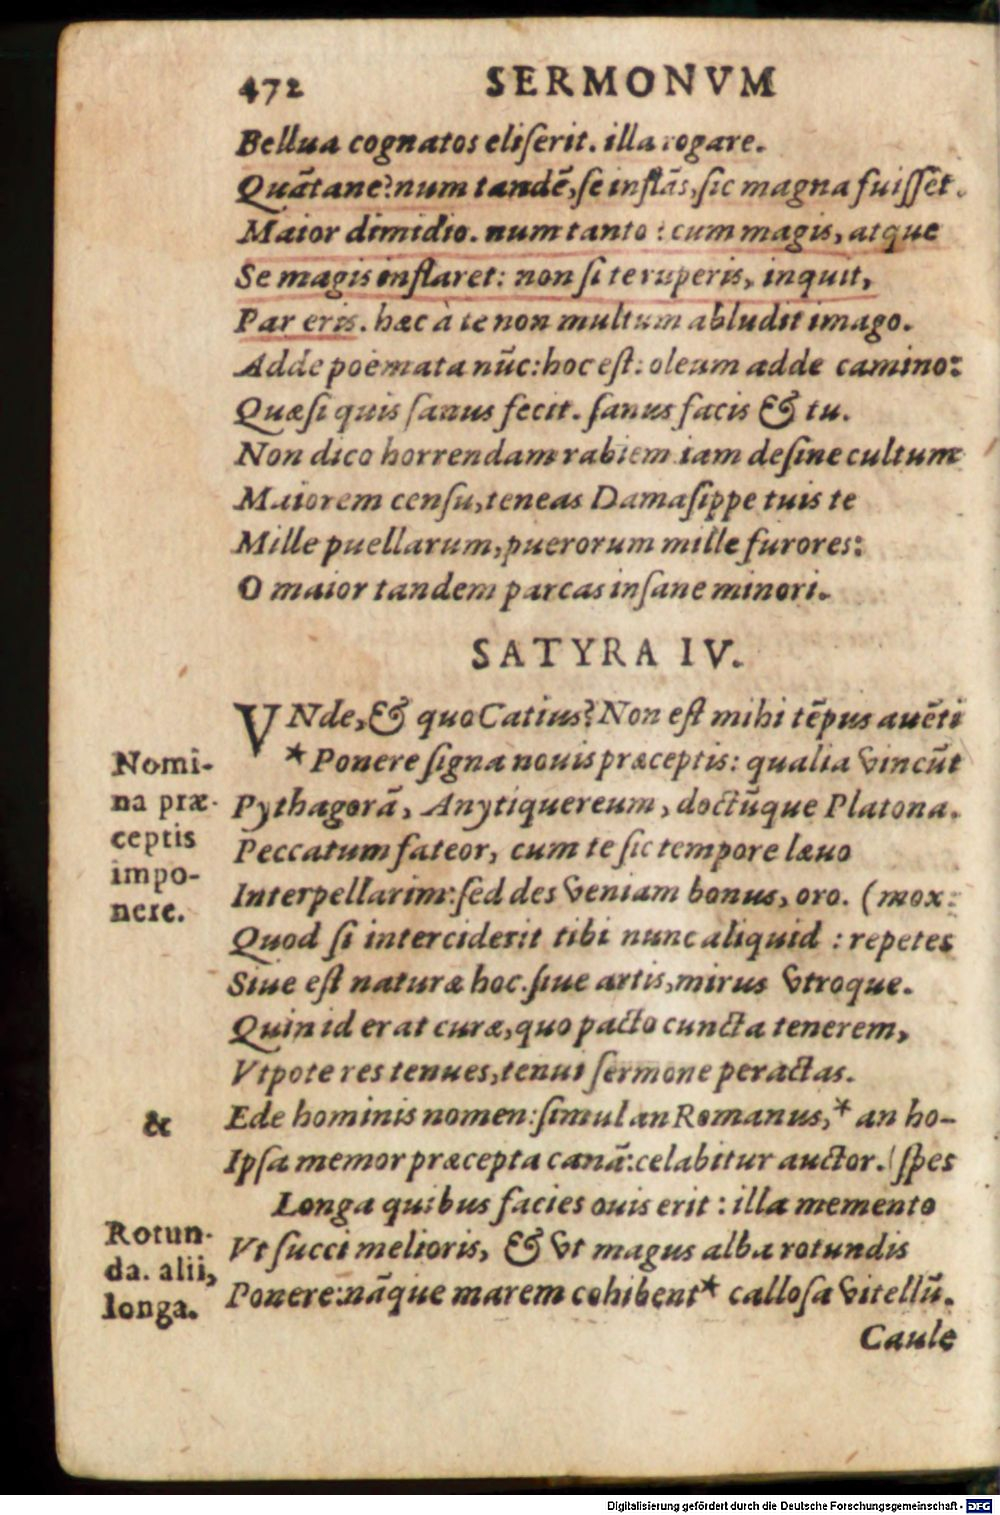 472 SERMONVM
Bellua cognatos eliſerit. illa rogare.
Quãtane? num tandẽ, ſe inflãs, ſic magna fuiſſet.
Maior dimidio. num tanto : cum magis, atque
Se magis inflaret: non ſi te ruperis, inquit,
Par eris. hæc à te non multum abludit imago.
Adde poëmata nũc: hoc eſt: oleum adde camino:
Quæ ſi quis ſanus fecit. ſanus facis & tu.
Non dico horrendam rabiem iam deſine cultum
Maiorem cenſu, teneas Damaſippe tuis te
Mille puellarum, puerorum mille furores:
O maior tandem parcas inſane minori.
SATYRA IV.
VNde, & quo Catius? Non eſt mihi tẽpus auẽti
*Ponere ſigna nouis præceptis: qualia vincũt
Pythagorã, Anytiquereum, doctũque Platona.
Peccatum fateor, cum te ſic tempore læuo
Interpellarim: ſed des veniam bonus, oro. (mox:
Quod ſi interciderit tibi nunc aliquid : repetes
Siue eſt naturæ hoc. ſiue artis, mirus vtroque.
Quin id erat curæ, quo pacto cuncta tenerem,
Vtpote res tenues, tenui ſermone peractas.
Ede hominis nomen: ſimul an Romanus,* an ho-
Ipſa memor præcepta canã: celabitur auctor. (ſpes
Longa quibus facies ouis erit : illa memento
Vt ſucci melioris, & vt magus alba rotundis
Ponere: nãque marem cohibent* calloſa vitellũ.
Caule
Nomi-
na præ-
ceptis
impo-
nere.
&
Rotun-
da. alii,
longa.
Digitalisierung gefördert durch die Deutsche Forschungsgemeinschaft - DFG